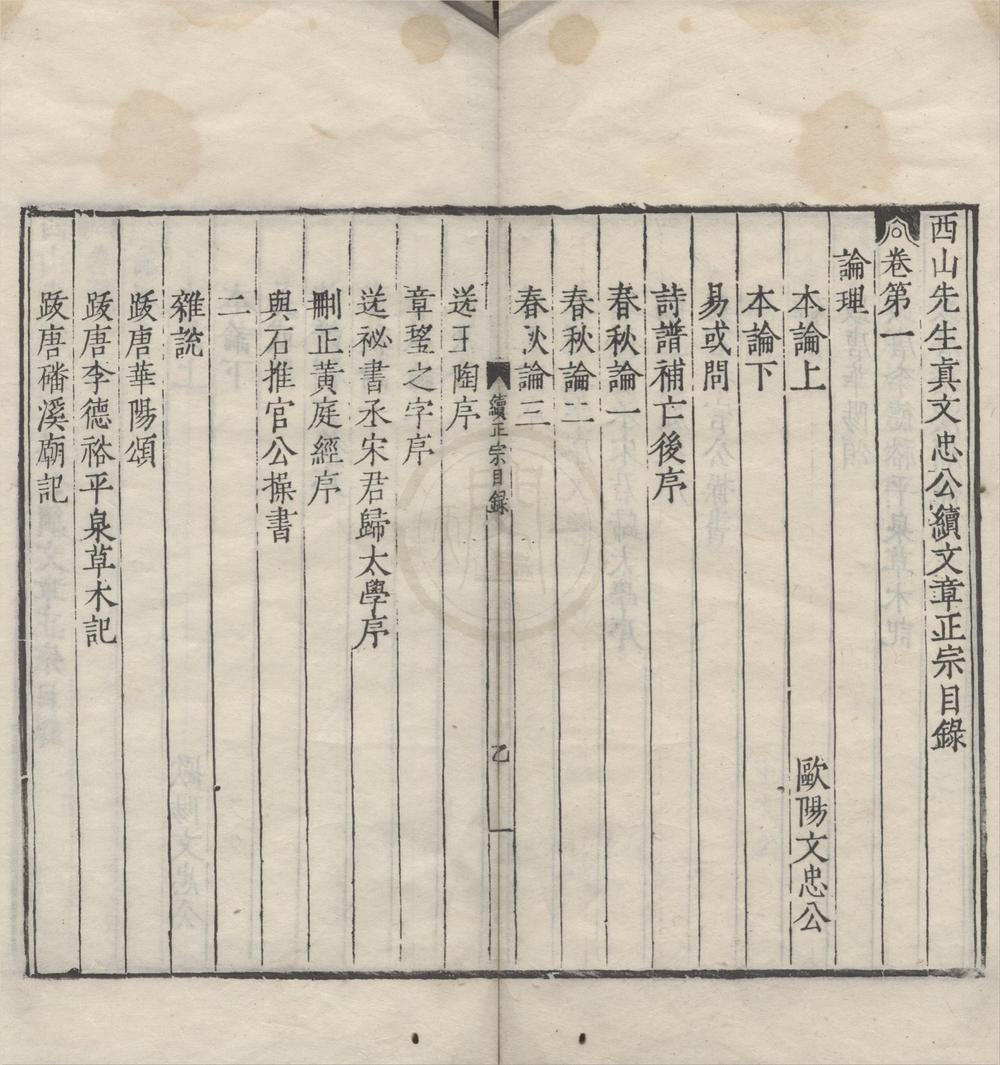 西山先生真文忠公續文章正宗目錄
卷第一
論理
本論上 歐陽文忠公
本論下
易或問
詩譜補亡後序
春秋論一
春秋論二
春秋論三
續正宗目錄 乙
送王陶序
章望之字序
送祕書丞宋君歸太學序
刪正黃庭經序
與石推官公操書
二
雜說
跋唐華陽頌
跋唐李德裕平泉草木記
跋唐磻溪廟記